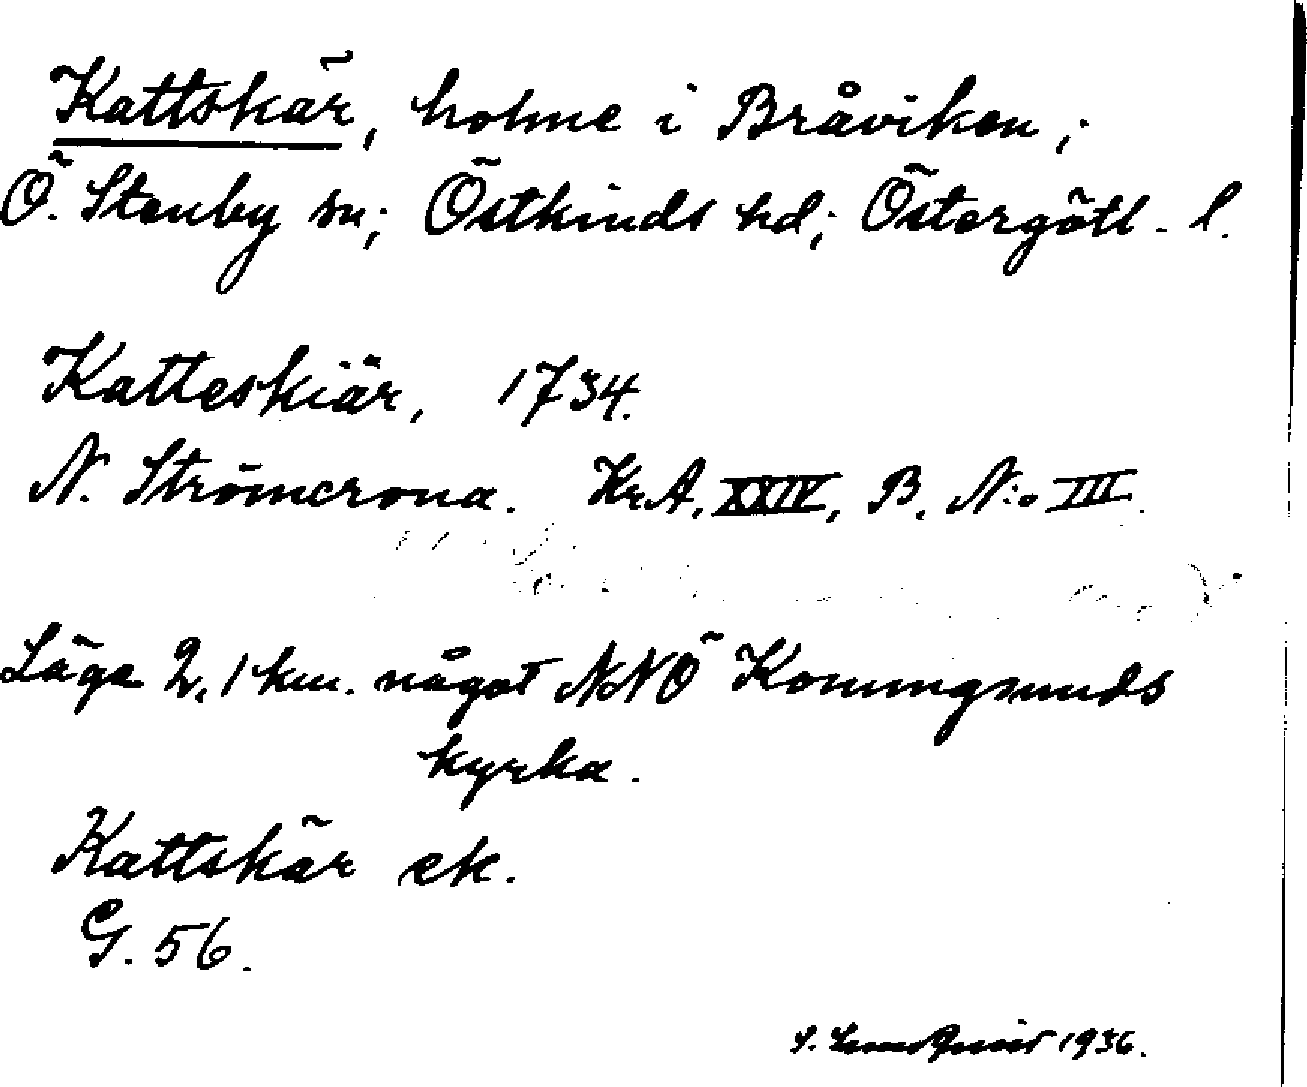 Kattskär, holme i Bråviken;
Ö. Stenby sn; Östkinds hd; Östergötl. l.
Katteskiär, 1734.
N. Strömcrona. Kr.A. XXIV, B. N:o III.
Läge 2,1 km. något NNÖ Konungsunds
kyrka.
Kattskär ek.
G. 56.
S. 1936.